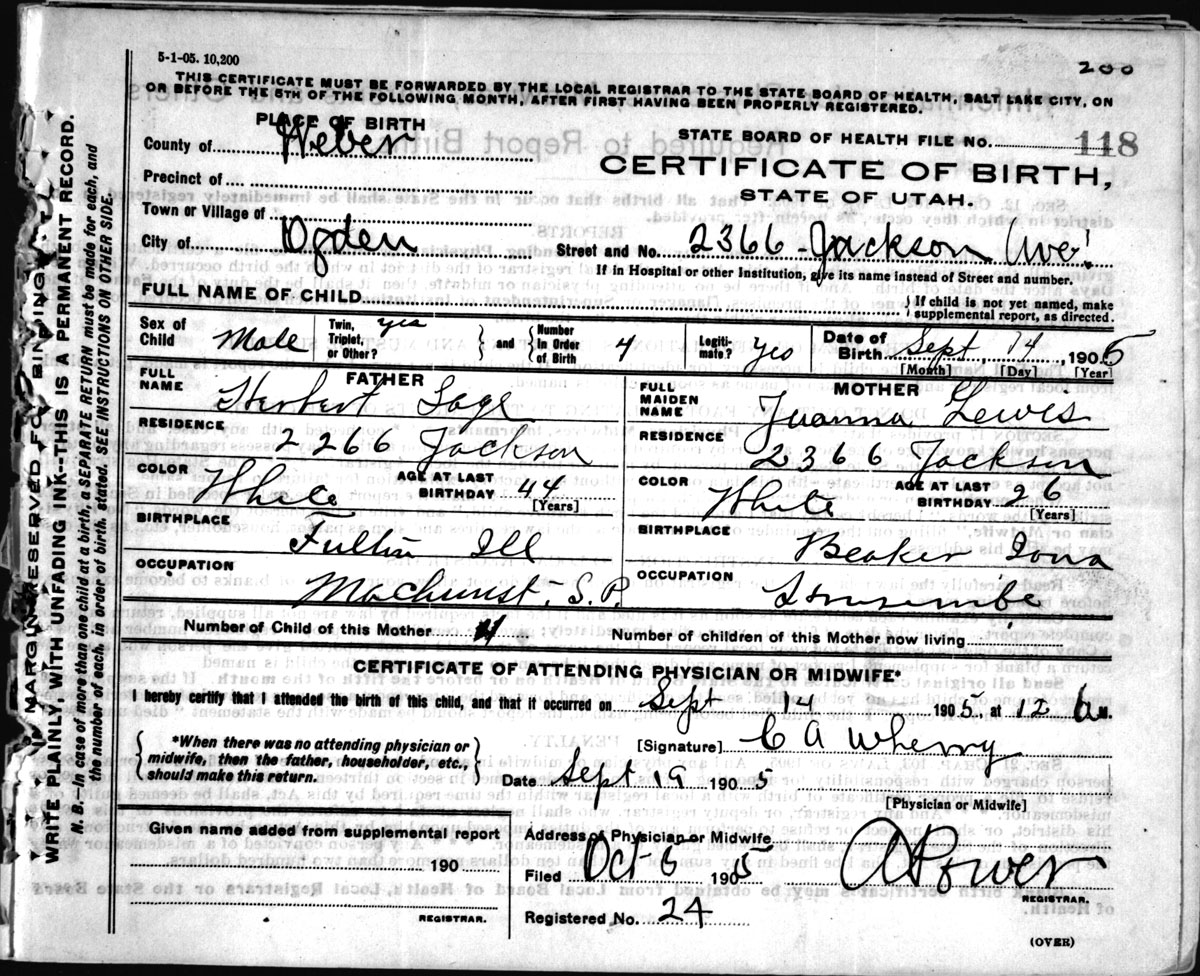 5-1-05. 10,200
200
THIS CERTIFICATE MUST BE FORWARDED BY THE LOCAL REGISTRAR TO THE STATE BOARD OF HEALTH, SALT LAKE CITY, ON
OR BEFORE THE 5TH OF THE FOLLOWING MONTH, AFTER FIRST HAVING BEEN PROPERLY REGISTERED.
PLACE OF BIRTH
STATE BOARD OF HEALTH FILE NO. 118
County of Weber
CERTIFICATE OF BIRTH,
Precinct of
STATE OF UTAH.
Town or Village of
City of Ogden Street and No. 2366 - Jackson Ave.
If in Hospital or other Institution, give its name instead of Street and number.
FULL NAME OF CHILD
If child is not yet named, make
supplemental report, as directed.
Sex of Child Male Twin, Triplet, or Other? yes and Number in Order of Birth 4 Legiti-mate? yes Date of Birth Sept 14, 1905
[Month] [Day] [Year]
FATHER
FULL NAME Herbert Sage
RESIDENCE 2266 Jackson
COLOR White AGE AT LAST BIRTHDAY 44
[Years]
BIRTHPLACE Ill
OCCUPATION Machinist, S. P.
MOTHER
FULL MAIDEN NAME Lewis
RESIDENCE 2366 Jackson
COLOR White AGE AT LAST BIRTHDAY 26
[Years]
BIRTHPLACE Iowa
OCCUPATION
Number of Child of this Mother 4 Number of children of this Mother now living
CERTIFICATE OF ATTENDING PHYSICIAN OR MIDWIFE*
I hereby certify that I attended the birth of this child, and that it occurred on Sept 14 1905, at 12 M.
*When there was no attending physician or
midwife, then the father, householder, etc.,
should make this return.
[Signature] C A Wherry
Date Sept 19 1905
[Physician or Midwife]
Given name added from supplemental report
190
REGISTRAR.
Address of Physician or Midwife
Filed Oct 6 1905 A Power
REGISTRAR.
Registered No. 24
(OVER)
MARGIN RESERVED FOR BINDING
WRITE PLAINLY WITH UNFADING INK--THIS IS A PERMANENT RECORD.
N. B.--In case of more than one child at a birth, a SEPARATE RETURN must be made for each, and
the number of each, in order of birth, stated. SEE INSTRUCTIONS ON OTHER SIDE.